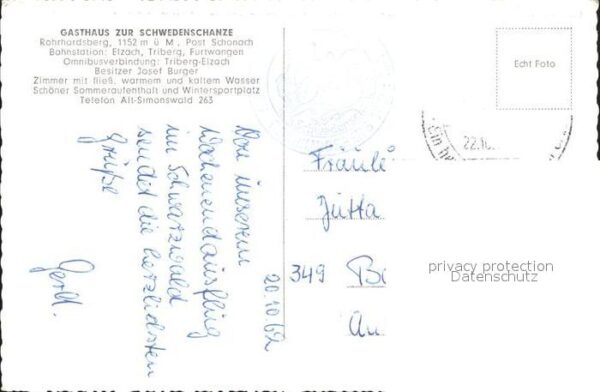 GASTHAUS ZUR SCHWEDENSCHANZE
Rohrhardsberg, 1152 m ü M, Post Schonach
Bahnstation: Elzach, Triberg, Furtwangen
Omnibusverbindung: Triberg-Elzach
Besitzer Josef Burger
Zimmer mit fließ. warmem und kaltem Wasser
Schöner Sommeraufenthalt und Wintersportplatz
Telefon Alt-Simonswald 263
Echt Foto
22.10.
20.10.62
Von unserem
Wochenendausflug
im Schwarzwald
sendet die herzlichsten
Grüße
Fräule
Jutta
349 Be
privacy protection
Datenschutz